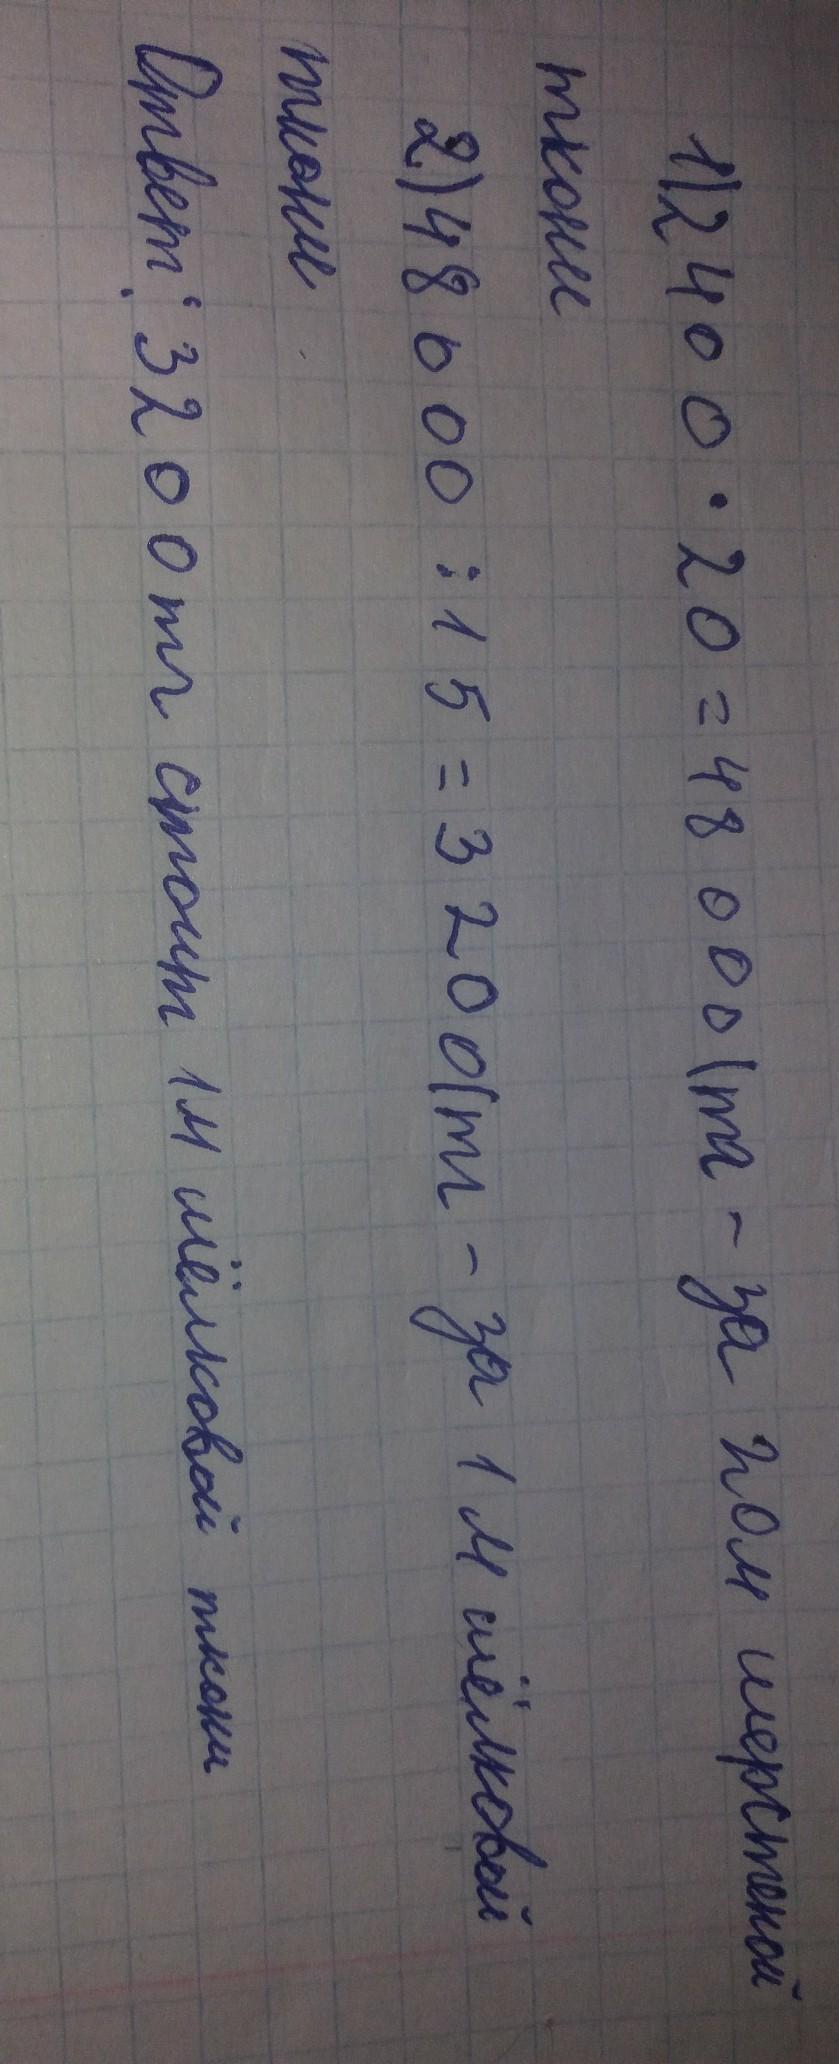 1)2400·20=48000(тг-за 20м шерстеной
ткани
2)48000:15=3200(тг-за 1м шёлковой
ткани
Ответ: 3200тг стоит 1м шёлковой ткани